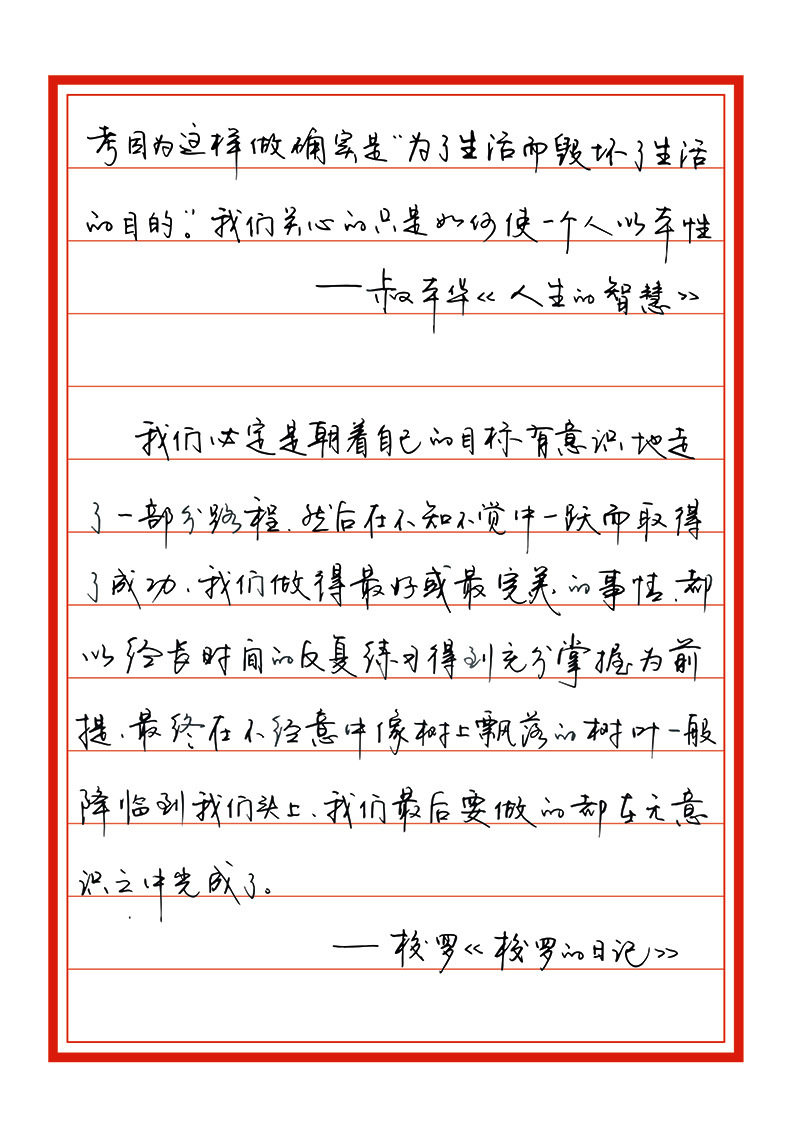 考因为这样做确实是“为了生活而毁坏了生活
的目的。”我们关心的只是如何使一个人以本性
——叔本华《人生的智慧》
我们必定是朝着自己的目标有意识地走
了一部分路程，然后在不知不觉中一跃而取得
了成功、我们做得最好或最完美的事情，都
以经长时间的反复练习得到充分掌握为前
提，最终在不经意中像树上飘落的树叶一般
降临到我们头上、我们最后要做的都在无意
识之中完成了。
——梭罗《梭罗的日记》